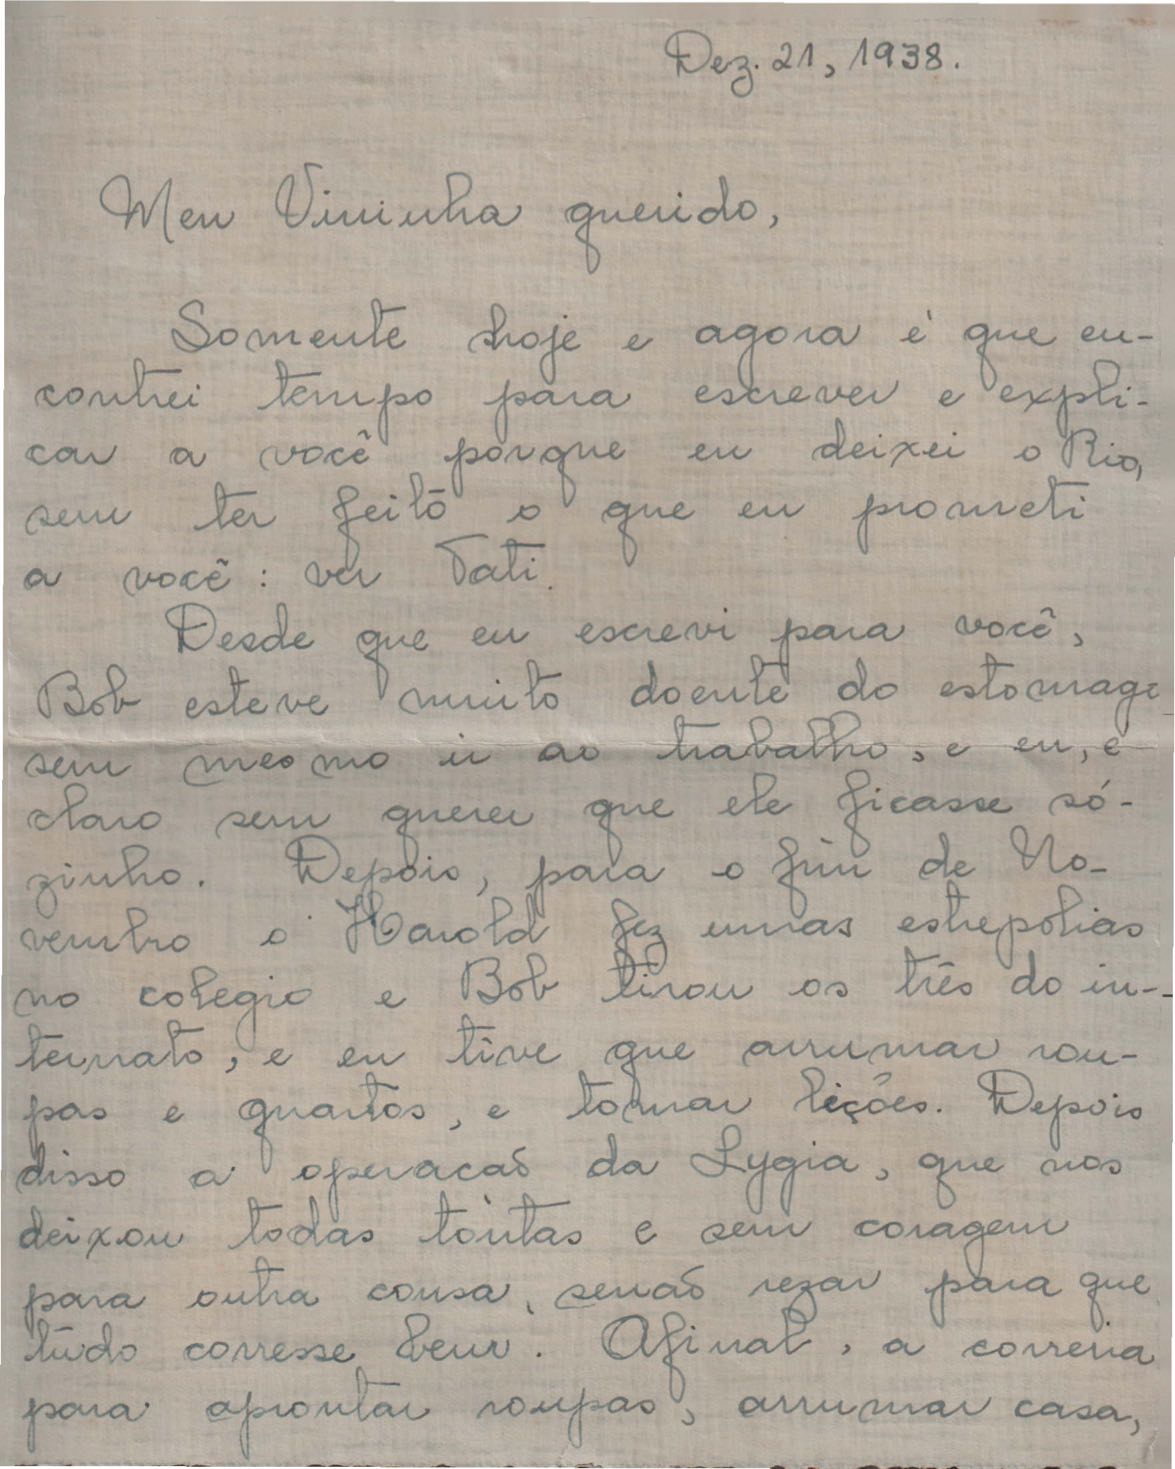 Dez. 21, 1938.
Meu Vininha querido,
Somente hoje e agora é que en-
contrei tempo para escrever e expli-
car a você porque eu deixei o Rio,
sem ter feito o que eu prometi
a você: ver Tati.
Desde que eu escrevi para você,
Bob esteve muito doente do estomago
sem mesmo ir ao trabalho, e eu, é
claro sem querer que ele ficasse só-
zinho. Depois, para o fim de No-
vembro o Harold fez umas estrepolias
no colegio e Bob tirou os três do in-
ternato, e eu tive que arrumar rou-
pas e quartos, e tomar lições. Depois
disso a operacaõ da Lygia, que nos
deixou todas tontas e sem coragem
para outra cousa, senaõ rezar para que
tudo corresse bem. Afinal, a correria
para aprontar roupas, arrumar casa,